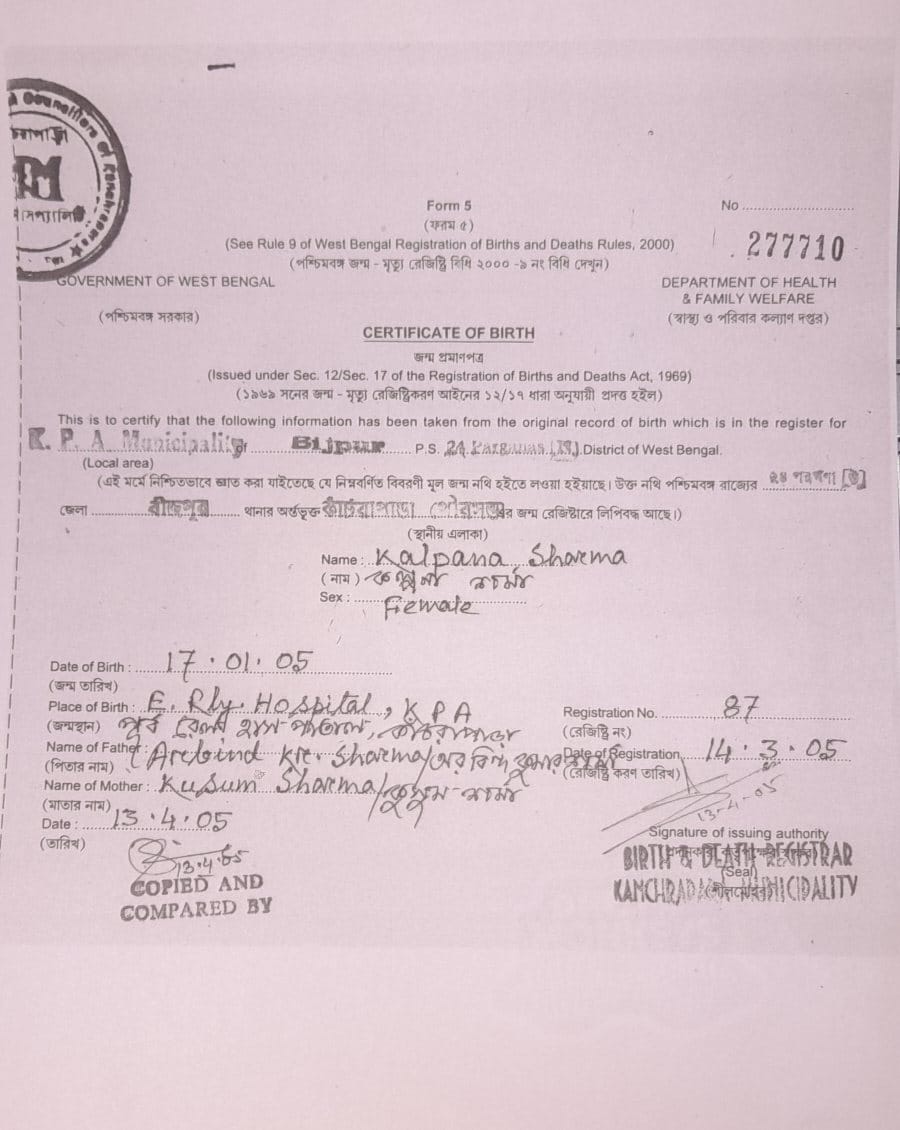 Councillors of Kanchrapara
Form 5
(ফরম ৫)
No
277710
(See Rule 9 of West Bengal Registration of Births and Deaths Rules, 2000)
(পশ্চিমবঙ্গ জন্ম - মৃত্যু রেজিষ্ট্রি বিধি ২০০০ -৯ নং বিধি দেখুন)
GOVERNMENT OF WEST BENGAL
(পশ্চিমবঙ্গ সরকার)
DEPARTMENT OF HEALTH
& FAMILY WELFARE
(স্বাস্থ্য ও পরিবার কল্যাণ দপ্তর)
CERTIFICATE OF BIRTH
জন্ম প্রমাণপত্র
(Issued under Sec. 12/Sec. 17 of the Registration of Births and Deaths Act, 1969)
(১৯৬৯ সনের জন্ম - মৃত্যু রেজিষ্ট্রিকরণ আইনের ১২/১৭ ধারা অনুযায়ী প্রদত্ত হইল)
This is to certify that the following information has been taken from the original record of birth which is in the register for
K. P. A Municipality of Bijpur P.S. 24 Parganas (N) District of West Bengal.
(Local area)
(এই মর্মে নিশ্চিতভাবে জ্ঞাত করা যাইতেছে যে নিম্নবর্ণিত বিবরণী মূল জন্ম নথি হইতে লওয়া হইয়াছে। উক্ত নথি পশ্চিমবঙ্গ রাজ্যের ২৪ পরগণা (উ)
জেলা বীজপুর থানার অর্ন্তভূক্ত কাঁচরাপাড়া পৌরসভার জন্ম রেজিষ্টারে লিপিবদ্ধ আছে।)
(স্থানীয় এলাকা)
Name : Kalpana Sharma
(নাম) কল্পনা শর্মা
Sex : Female
Date of Birth : 17.01.05
(জন্ম তারিখ)
Place of Birth : E. Rly. Hospital, KPA
(জন্মস্থান) পূর্ব রেলওয়ে হাসপাতাল, কাঁচরাপাড়া
Registration No. 87
(রেজিষ্ট্রি নং)
Name of Father : Arebind Kr. Sharma/অরবিন্দ কুমার শর্মা
(পিতার নাম)
Date of Registration 14.3.05
(রেজিষ্ট্রি করণ তারিখ)
Name of Mother : Kusum Sharma/কুসুম শর্মা
(মাতার নাম)
Date : 13.4.05
(তারিখ)
13-4-05
Signature of issuing authority
13.4.05
COPIED AND
COMPARED BY
BIRTH & DEATH REGISTRAR
(Seal)
KANCHRAPARA MUNICIPALITY